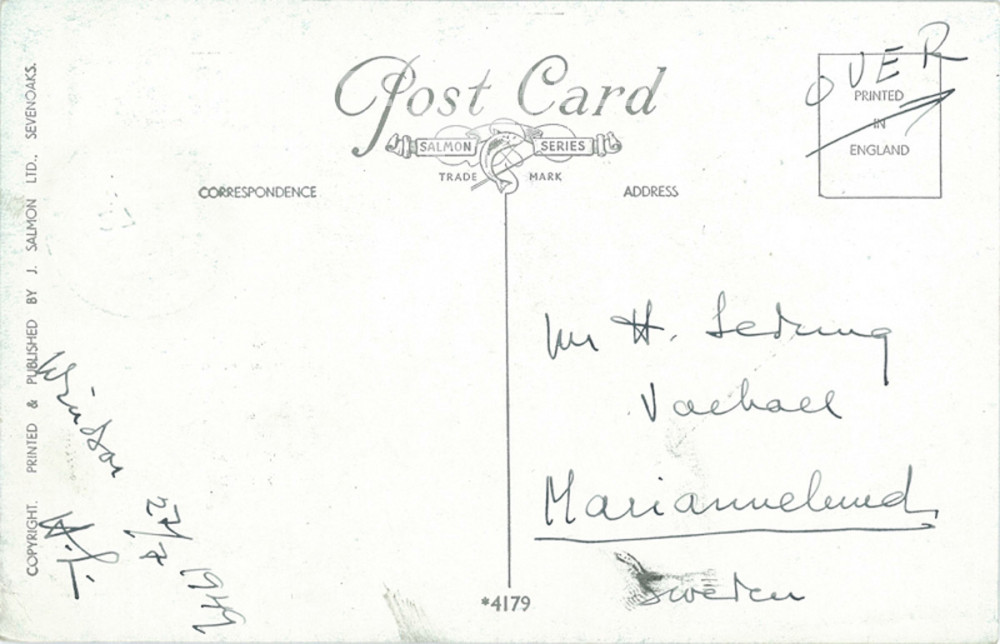 OVER
Post Card
SALMON SERIES
TRADE MARK
PRINTED
IN
ENGLAND
CORRESPONDENCE
ADDRESS
COPYRIGHT. PRINTED & PUBLISHED BY J. SALMON LTD., SEVENOAKS.
Windsor
27/7 1949
Mr H.
Mariannelund
Sweden
*4179